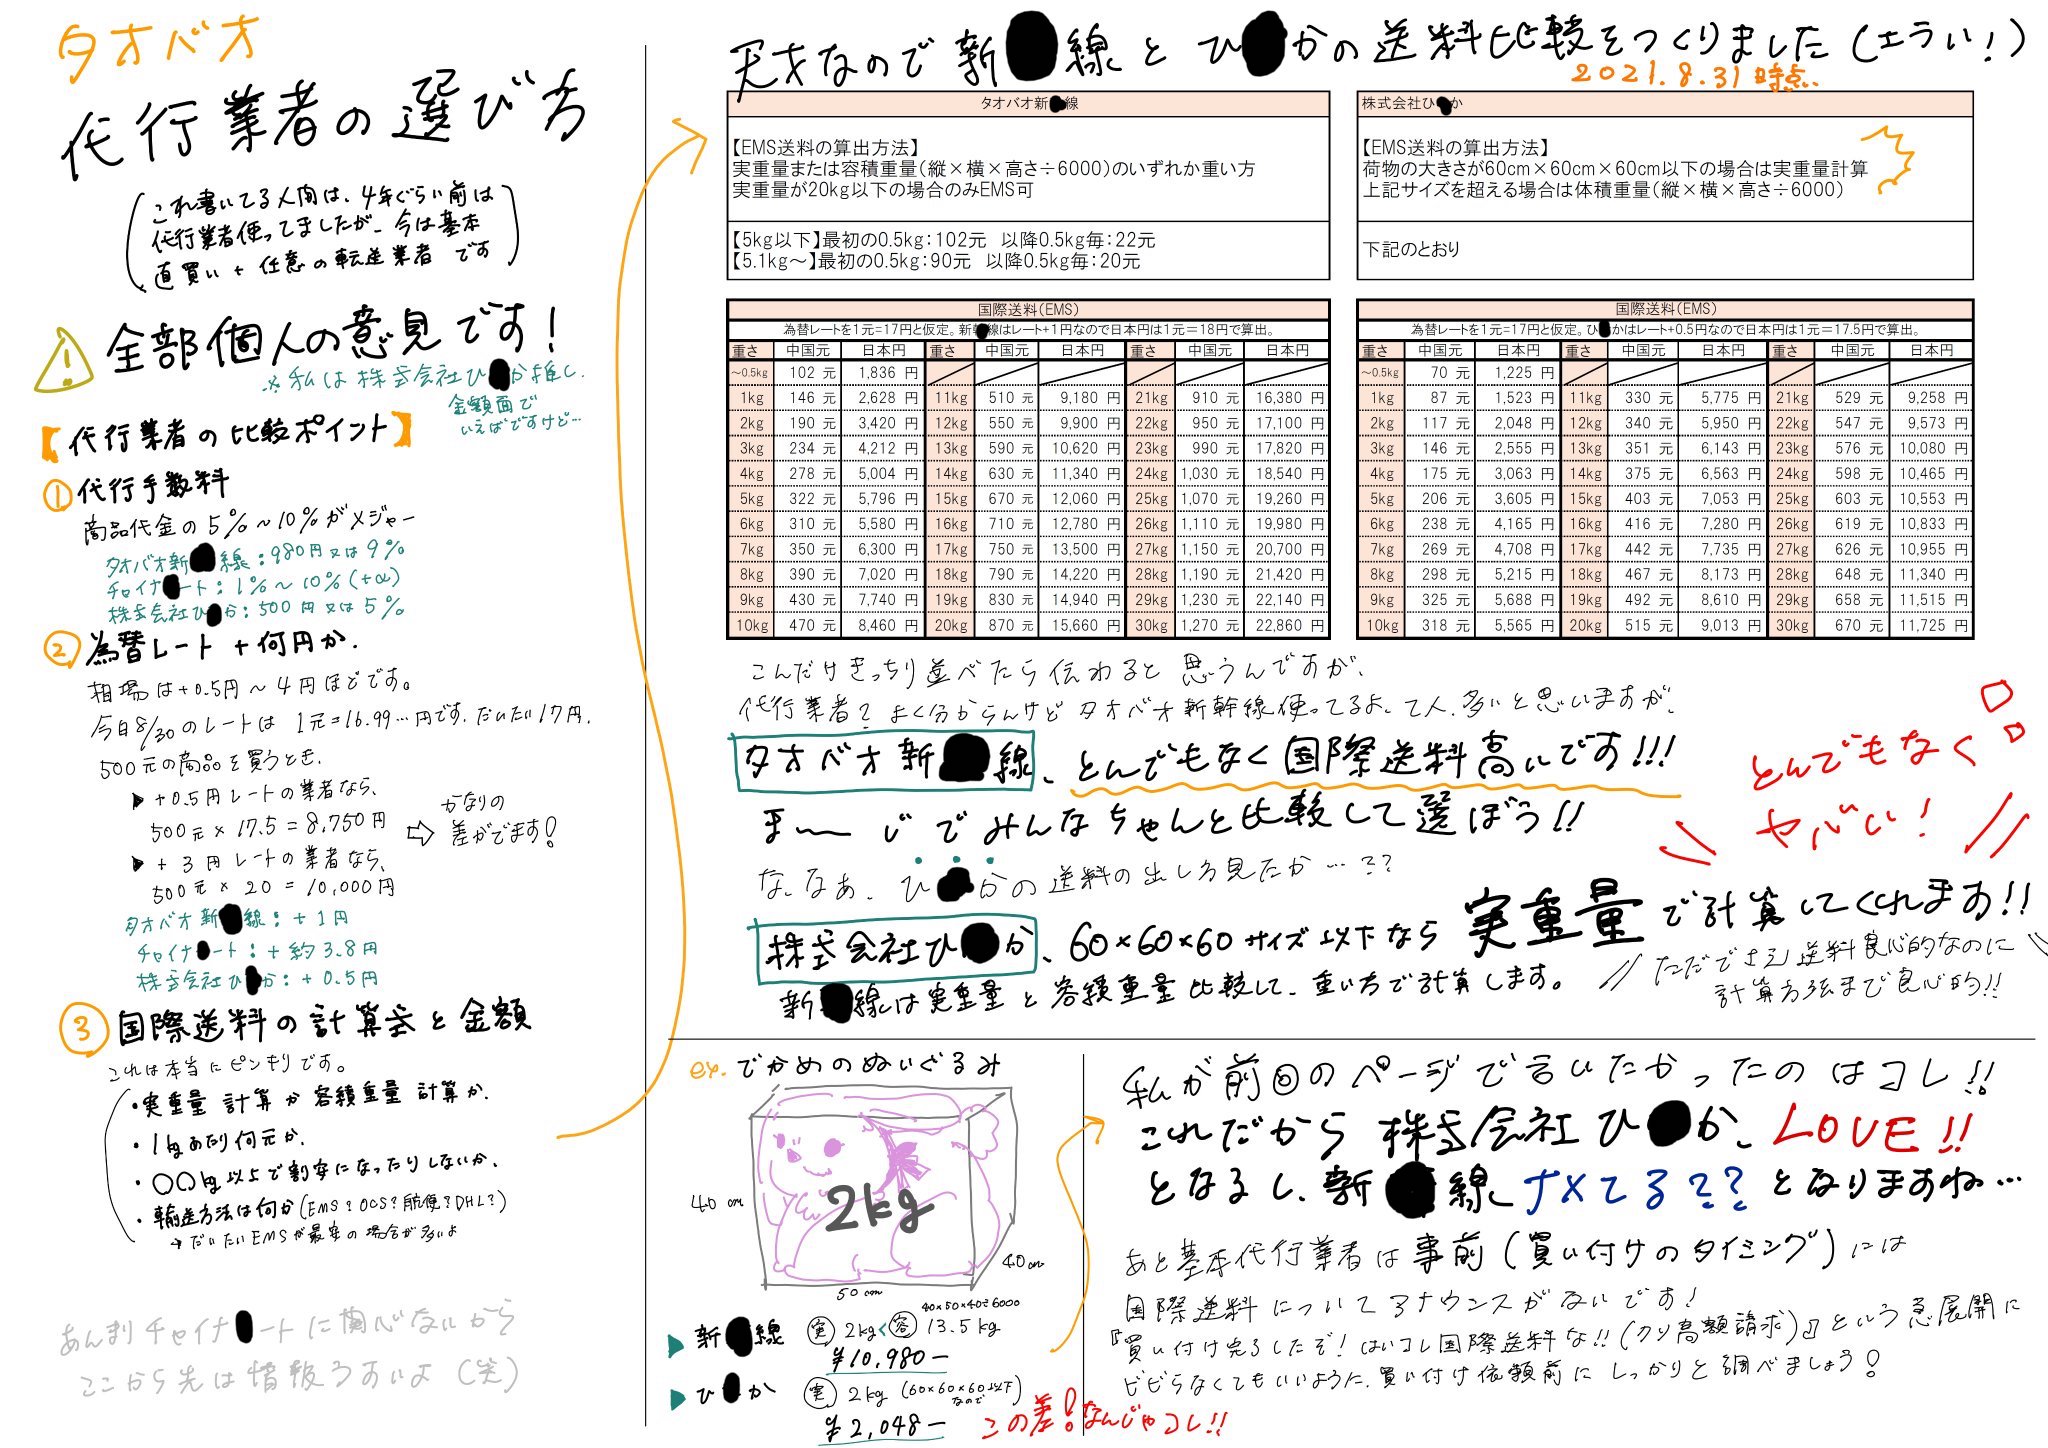 タオバオ
代行業者の選び方
(これ書いてる人間は、4年ぐらい前は
代行業者使ってましたが、今は基本
直買い + 任意の転送業者 です)
! 全部個人の意見です!
※私は株式会社ひ●か推し。
金額面で
いえばですけど…
【代行業者の比較ポイント】
① 代行手数料
商品代金の5%~10%がメジャー
タオバオ新●線:980円又は9%
チャイナ●ート:1%~10%(+α)
株式会社ひ●か:500円又は5%
② 為替レート+何円か.
相場は+0.5円~4円ほどです。
今日8/30のレートは 1元=16.99…円です. だいたい17円.
500元の商品を買うとき、
▶ +0.5円レートの業者なら、
500元×17.5=8,750円
▶ +3円レートの業者なら、
500元×20=10,000円
⇨ かなりの
差がでます!
タオバオ新●線:+1円
チャイナ●ート:+約3.8円
株式会社ひ●か:+0.5円
③ 国際送料の計算式と金額
これは本当にピンキリです。
・実重量計算か容積重量計算か.
・1kgあたり何元か.
・〇〇kg以上で割安になったりしないか.
・輸送方法は何か(EMS?OCS?船便?DHL?)
→だいたいEMSが最安の場合が多いよ
あんまりチャイナ●ートに関心ないから
ここから先は情報ろあいよ(笑)
天才なので新●線とひ●かの送料比較をつくりました(エラい!)
2021.8.31時点.
タオバオ新●線
【EMS送料の算出方法】
実重量または容積重量(縦×横×高さ÷6000)のいずれか重い方
実重量が20kg以下の場合のみEMS可
【5kg以下】最初の0.5kg:102元 以降0.5kg毎:22元
【5.1kg~】最初の0.5kg:90元 以降0.5kg毎:20元
国際送料(EMS)
為替レートを1元=17円と仮定。新●線はレート+1円なので日本円は1元=18円で算出。
重さ 中国元 日本円 重さ 中国元 日本円 重さ 中国元 日本円
~0.5kg 102 元 1,836 円
1kg 146 元 2,628 円 11kg 510 元 9,180 円 21kg 910 元 16,380 円
2kg 190 元 3,420 円 12kg 550 元 9,900 円 22kg 950 元 17,100 円
3kg 234 元 4,212 円 13kg 590 元 10,620 円 23kg 990 元 17,820 円
4kg 278 元 5,004 円 14kg 630 元 11,340 円 24kg 1,030 元 18,540 円
5kg 322 元 5,796 円 15kg 670 元 12,060 円 25kg 1,070 元 19,260 円
6kg 310 元 5,580 円 16kg 710 元 12,780 円 26kg 1,110 元 19,980 円
7kg 350 元 6,300 円 17kg 750 元 13,500 円 27kg 1,150 元 20,700 円
8kg 390 元 7,020 円 18kg 790 元 14,220 円 28kg 1,190 元 21,420 円
9kg 430 元 7,740 円 19kg 830 元 14,940 円 29kg 1,230 元 22,140 円
10kg 470 元 8,460 円 20kg 870 元 15,660 円 30kg 1,270 元 22,860 円
株式会社ひ●か
【EMS送料の算出方法】
荷物の大きさが60cm×60cm×60cm以下の場合は実重量計算
上記サイズを超える場合は体積重量(縦×横×高さ÷6000)
下記のとおり
国際送料(EMS)
為替レートを1元=17円と仮定。ひ●かはレート+0.5円なので日本円は1元=17.5円で算出。
重さ 中国元 日本円 重さ 中国元 日本円 重さ 中国元 日本円
~0.5kg 70 元 1,225 円
1kg 87 元 1,523 円 11kg 330 元 5,775 円 21kg 529 元 9,258 円
2kg 117 元 2,048 円 12kg 340 元 5,950 円 22kg 547 元 9,573 円
3kg 146 元 2,555 円 13kg 351 元 6,143 円 23kg 576 元 10,080 円
4kg 175 元 3,063 円 14kg 375 元 6,563 円 24kg 598 元 10,465 円
5kg 206 元 3,605 円 15kg 403 元 7,053 円 25kg 603 元 10,553 円
6kg 238 元 4,165 円 16kg 416 元 7,280 円 26kg 619 元 10,833 円
7kg 269 元 4,708 円 17kg 442 元 7,735 円 27kg 626 元 10,955 円
8kg 298 元 5,215 円 18kg 467 元 8,173 円 28kg 648 元 11,340 円
9kg 325 元 5,688 円 19kg 492 元 8,610 円 29kg 658 元 11,515 円
10kg 318 元 5,565 円 20kg 515 元 9,013 円 30kg 670 元 11,725 円
こんだけきっちり並べたら伝わると思うんですが、
代行業者?よく分からんけどタオバオ新幹線使ってるよ、て人、多いと思いますが、
タオバオ新●線、とんでもなく国際送料高いです!!!
ま~じでみんなちゃんと比較して選ぼう!!
とんでもなく
ヤバい!
な、なぁ、ひ●かの送料の出し方見たか…??
株式会社ひ●か、60×60×60サイズ以下なら実重量で計算してくれます!!
新●線は実重量と容積重量比較して、重い方で計算します。
ただでさえ送料良心的なのに
計算方法まで良心的!!
ex. でかめのぬいぐるみ
2kg
40cm
40cm
50cm
40×50×40÷6000
▶ 新●線 実 2kg < 容 13.5kg
¥10,980-
▶ ひ●か 実 2kg (60×60×60以下なので)
¥2,048-
この差!なんじゃコレ!!
私が前回のページで言いたかったのはコレ!!
これだから株式会社ひ●か、LOVE!!
となるし、新●線ナメてる??となりますね…
あと基本代行業者は事前(買い付けのタイミング)には
国際送料についてアナウンスがないです!
『買い付け完了したぞ!はいコレ国際送料な!!(クソ高額請求)』という急展開に
ビビらなくてもいいように、買い付け依頼前にしっかりと調べましょう!